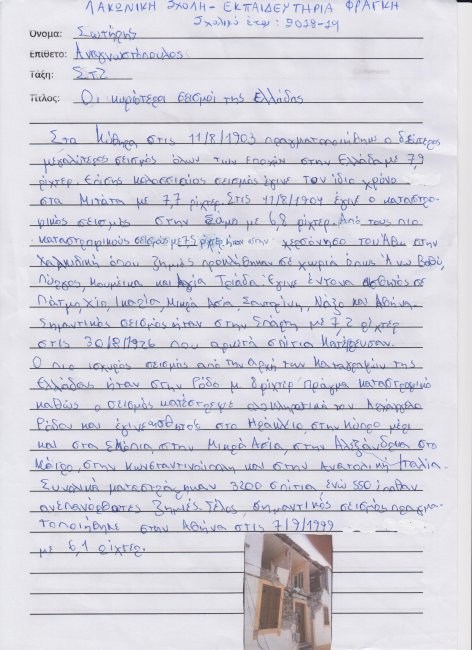 ΛΑΚΩΝΙΚΗ ΣΧΟΛΗ - ΕΚΠΑΙΔΕΥΤΗΡΙΑ ΦΡΑΓΚΗ
Σχολικό έτος: 2018-19
Όνομα: Σωτήρης
Επίθετο: Αναγνωστόπουλος
Τάξη: ΣΤ2
Τίτλος: Οι κυριότεροι σεισμοί της Ελλάδας
Στα Κύθηρα στις 11/8/1903 πραγματοποιήθηκε ο δεύτερος
μεγαλύτερος σεισμός όλων των εποχών στην Ελλάδα με 7,9
ρίχτερ. Επίσης κολοσσιαίος σεισμός έγινε τον ίδιο χρόνο
στα Μιτάτα με 7,7 ρίχτερ. Στις 11/8/1904 έγινε ο καταστρο-
φικός σεισμός στην Σάμο με 6,8 ρίχτερ. Από τους πιο
καταστροφικούς σεισμούς με 7,5 ρίχτερ ήταν στην χερσόνησο του Άθω στην
Χαλκιδική όπου ζημιές προκλήθηκαν σε χωριά όπως Άνω Βάβδο,
Πύργος, και Αγία Τριάδα. Έγινε έντονα αισθητός σε
Πάτμο, Χίο, Ικαρία, Μικρά Ασία, Σαντορίνη, Νάξο και Αθήνα.
Σημαντικός σεισμός ήταν στην Σπάρτη με 7,2 ρίχτερ
στις 30/8/1926 που αρκετά σπίτια κατέρευσαν.
Ο πιο ισχυρός σεισμός από την αρχή των καταγραφών της
Ελλάδας ήταν στην Ρόδο με 8 ρίχτερ. Πράγμα καταστροφικό
καθώς ο σεισμός κατέστρεψε ολοκληρωτικά τον Αρχάγγελο
Ρόδου και έγινε αισθητός στο Ηράκλειο, στην Κύπρο μέχρι
και στα Σκόπια, στην Μικρά Ασία, στην Αλεξάνδρεια, στο
Κάιρο, στην Κωνσταντινούπολη και στην Ανατολική Ιταλία.
Συνολικά καταστράφηκαν 3200 σπίτια ενώ 550 έπαθαν
ανεπανόρθωτες ζημιές. Τέλος, σημαντικός σεισμός πραγμα-
τοποιήθηκε στην Αθήνα στις 7/9/1999
με 6,1 ρίχτερ.